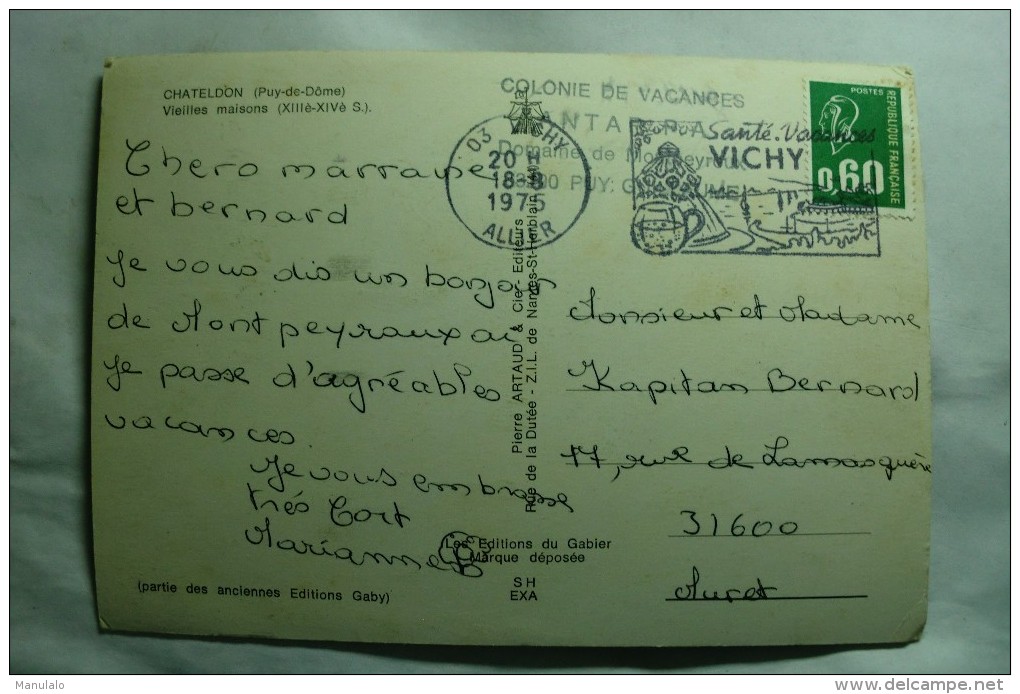 CHATELDON (Puy-de-Dôme)
Vieilles maisons (XIIIè-XIVè S.).
COLONIE DE VACANCES
Domaine de
03 VICHY
20 H
18-8
1975
ALLIER
Santé. Vacances
VICHY
POSTES
REPUBLIQUE FRANÇAISE
0,60
Chere marraine
et bernard
Je vous dis un bonjour
de Montpeyroux ou
Je passe d'agréables
vacances.
Je vous embrasse
très fort
Marianne
Pierre ARTAUD & Cie - Editeurs
Rue de la Dutée - Z.I.L. de Nantes-St-Herblain
Monsieur et Madame
Kapitan Bernard
17, rue de Lamasquère
31600
Muret
Les Editions du Gabier
Marque déposée
SH
EXA
(partie des anciennes Editions Gaby)
Manulalo